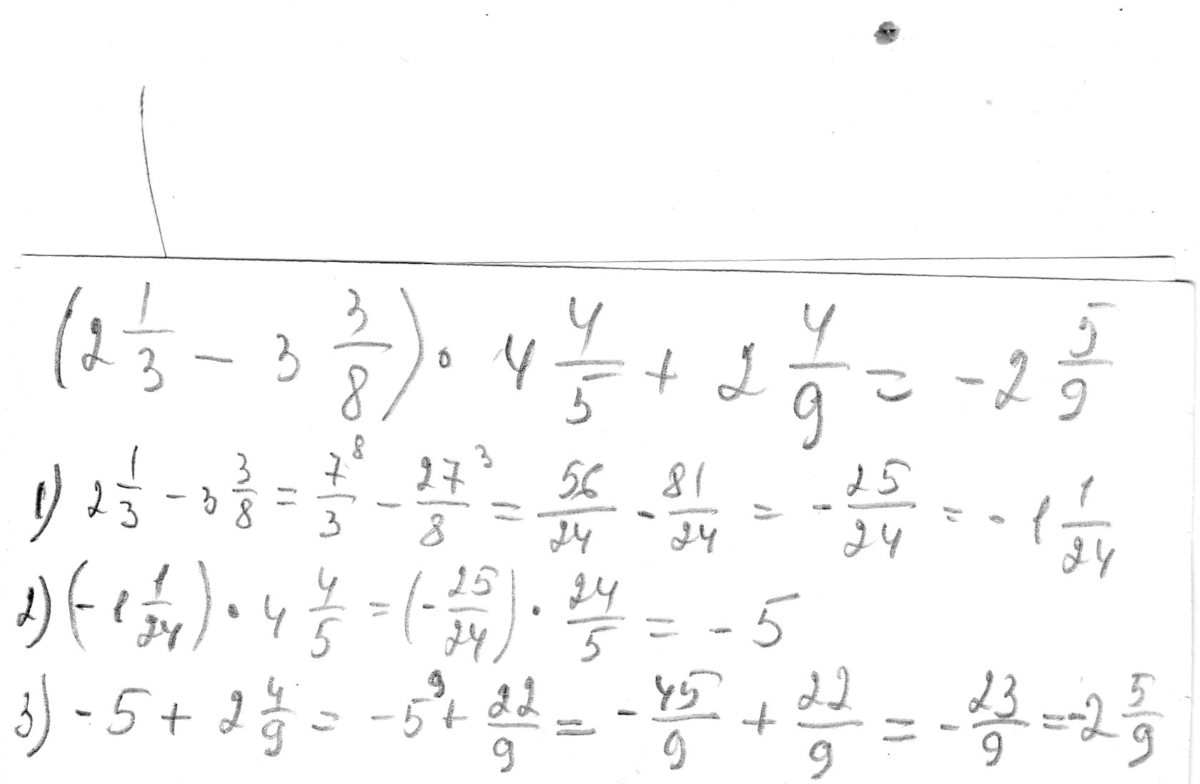 (2 1/3 - 3 3/8) · 4 4/5 + 2 4/9 = -2 5/9
1) 2 1/3 - 3 3/8 = 7^8/3 - 27^3/8 = 56/24 - 81/24 = -25/24 = -1 1/24
2) (-1 1/24) · 4 4/5 = (-25/24) · 24/5 = -5
3) -5 + 2 4/9 = -5^9 + 22/9 = -45/9 + 22/9 = -23/9 = -2 5/9